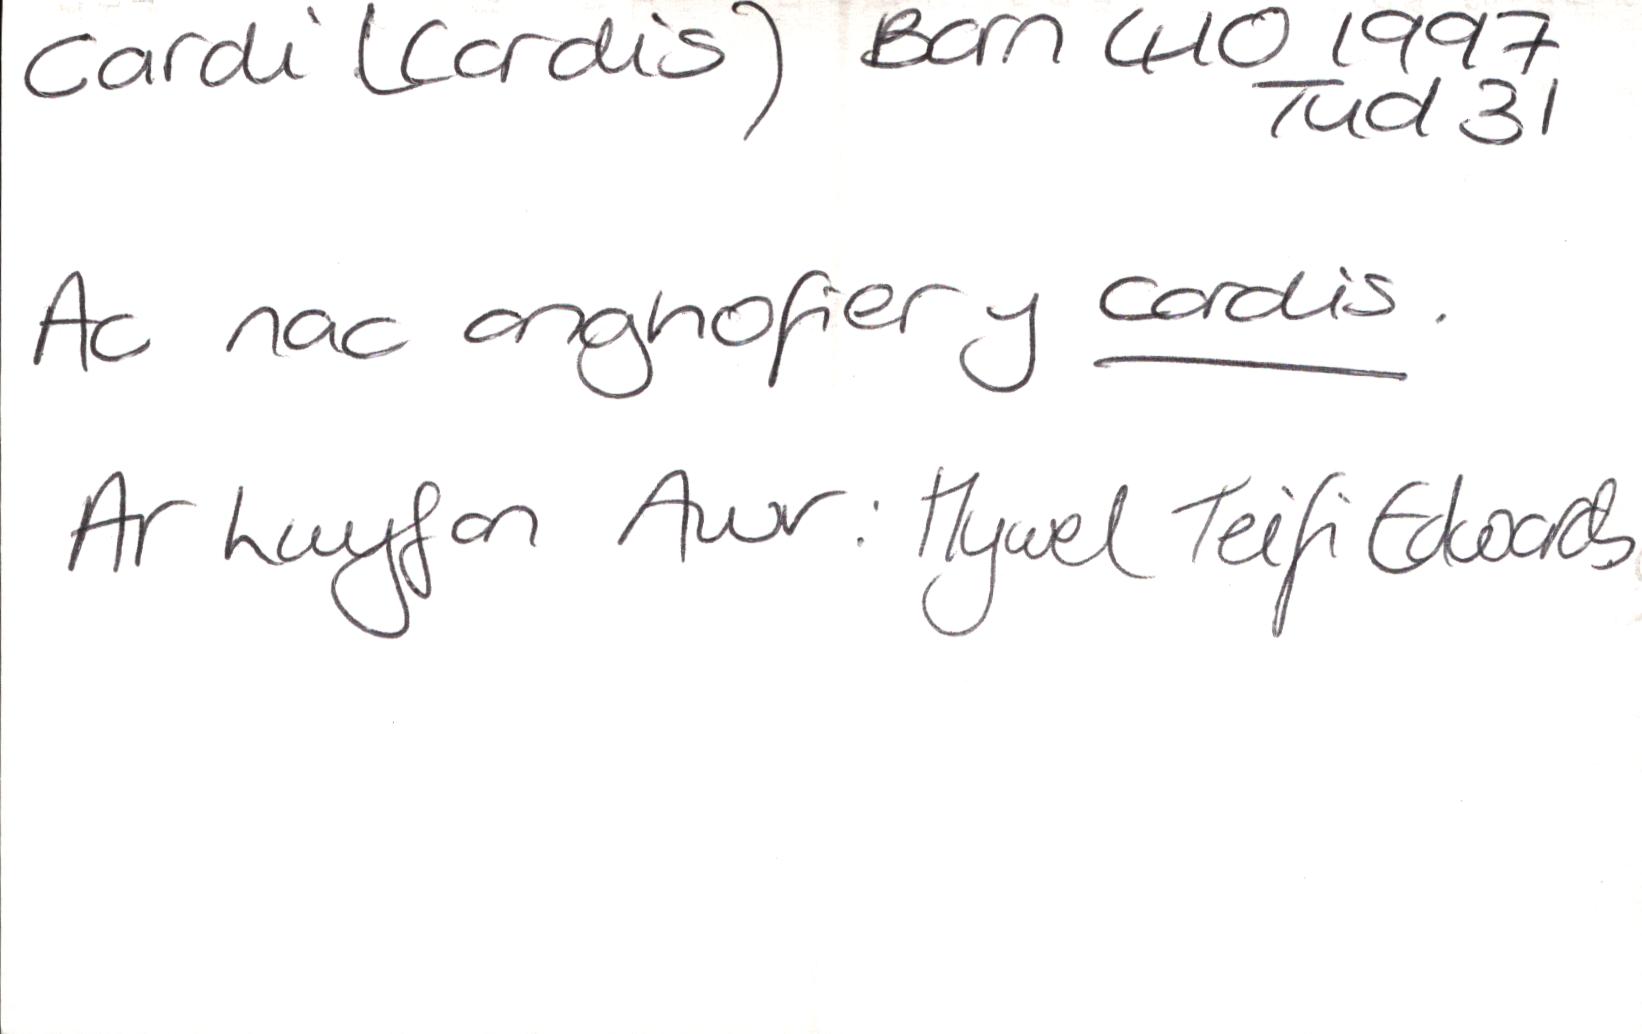 Cardi (Cardis) Barn 410 1997
Tud 31
Ac nac anghofier y cardis.
Ar Lwyfan Awr: Hywel Teifi Edwards